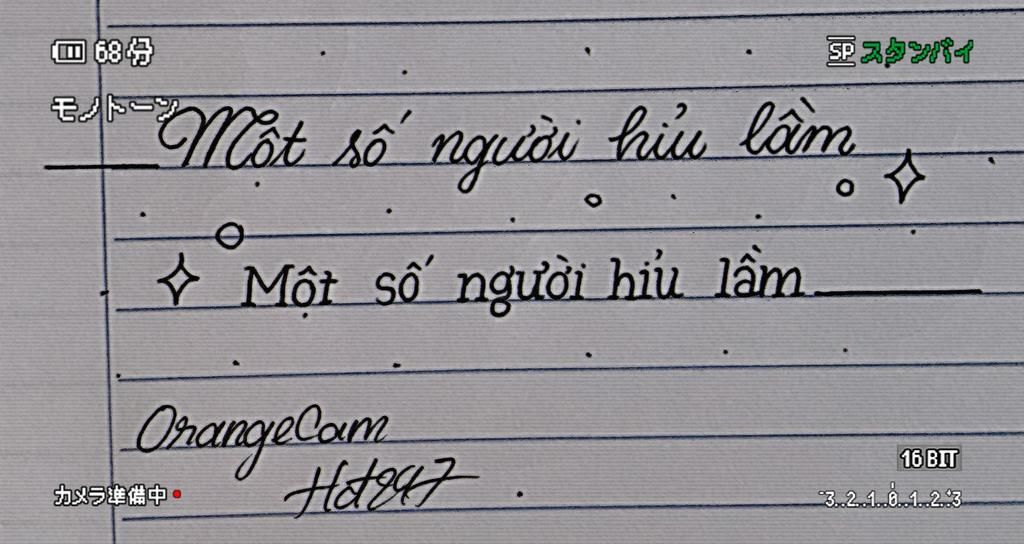 68分
SP スタンバイ
モノトーン
Một số người hỉu lầm
Một số người hỉu lầm
OrangeCam
Hot247
16 BIT
カメラ準備中
-3..2..1..0..1..2..+3